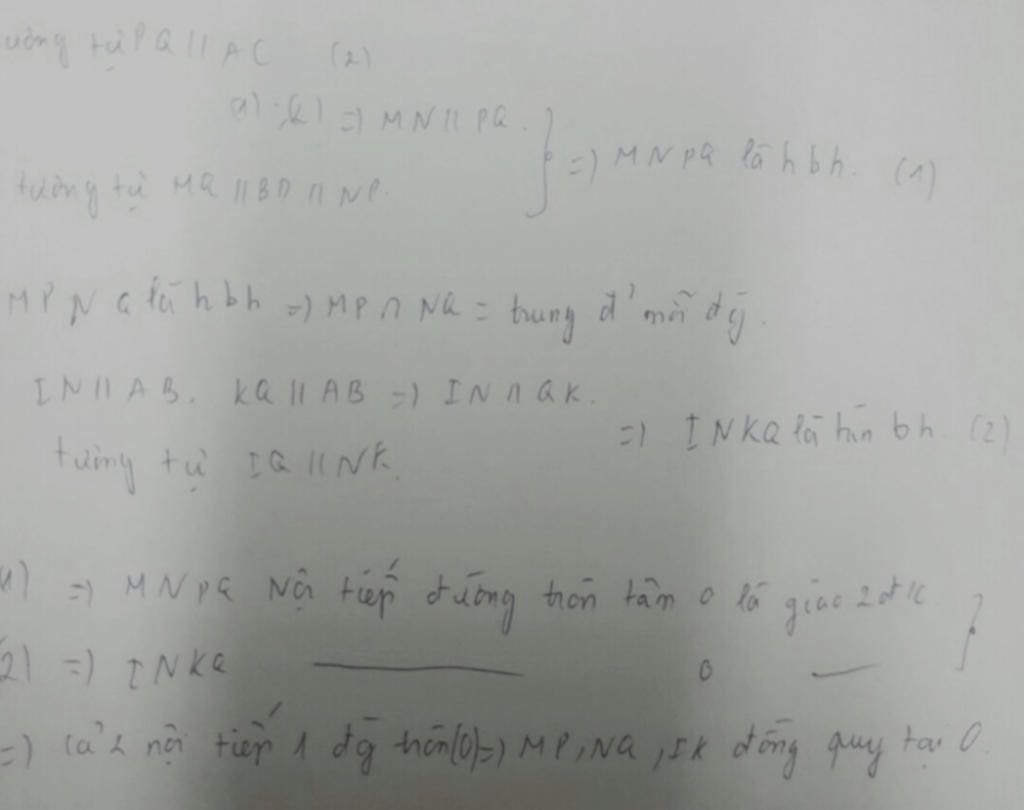 ường tự PQ // AC (2)
(1), (2) => MN // PQ.
=> MNPQ là hbh. (1)
tường tự MQ // BD // NP.
MPNQ là hbh => MP ∩ NQ = trung đ' mỗi đg.
IN // AB. KQ // AB => IN // QK.
=> INKQ là hìn bh. (2)
tường tự IQ // NK.
1) => MNPQ Nội tiếp đường tròn tâm O là giao 2 đ/c
2) => INKQ ——— O —
=> cả 2 nội tiếp 1 đg tròn (O) => MP, NQ, IK đồng quy tại O.